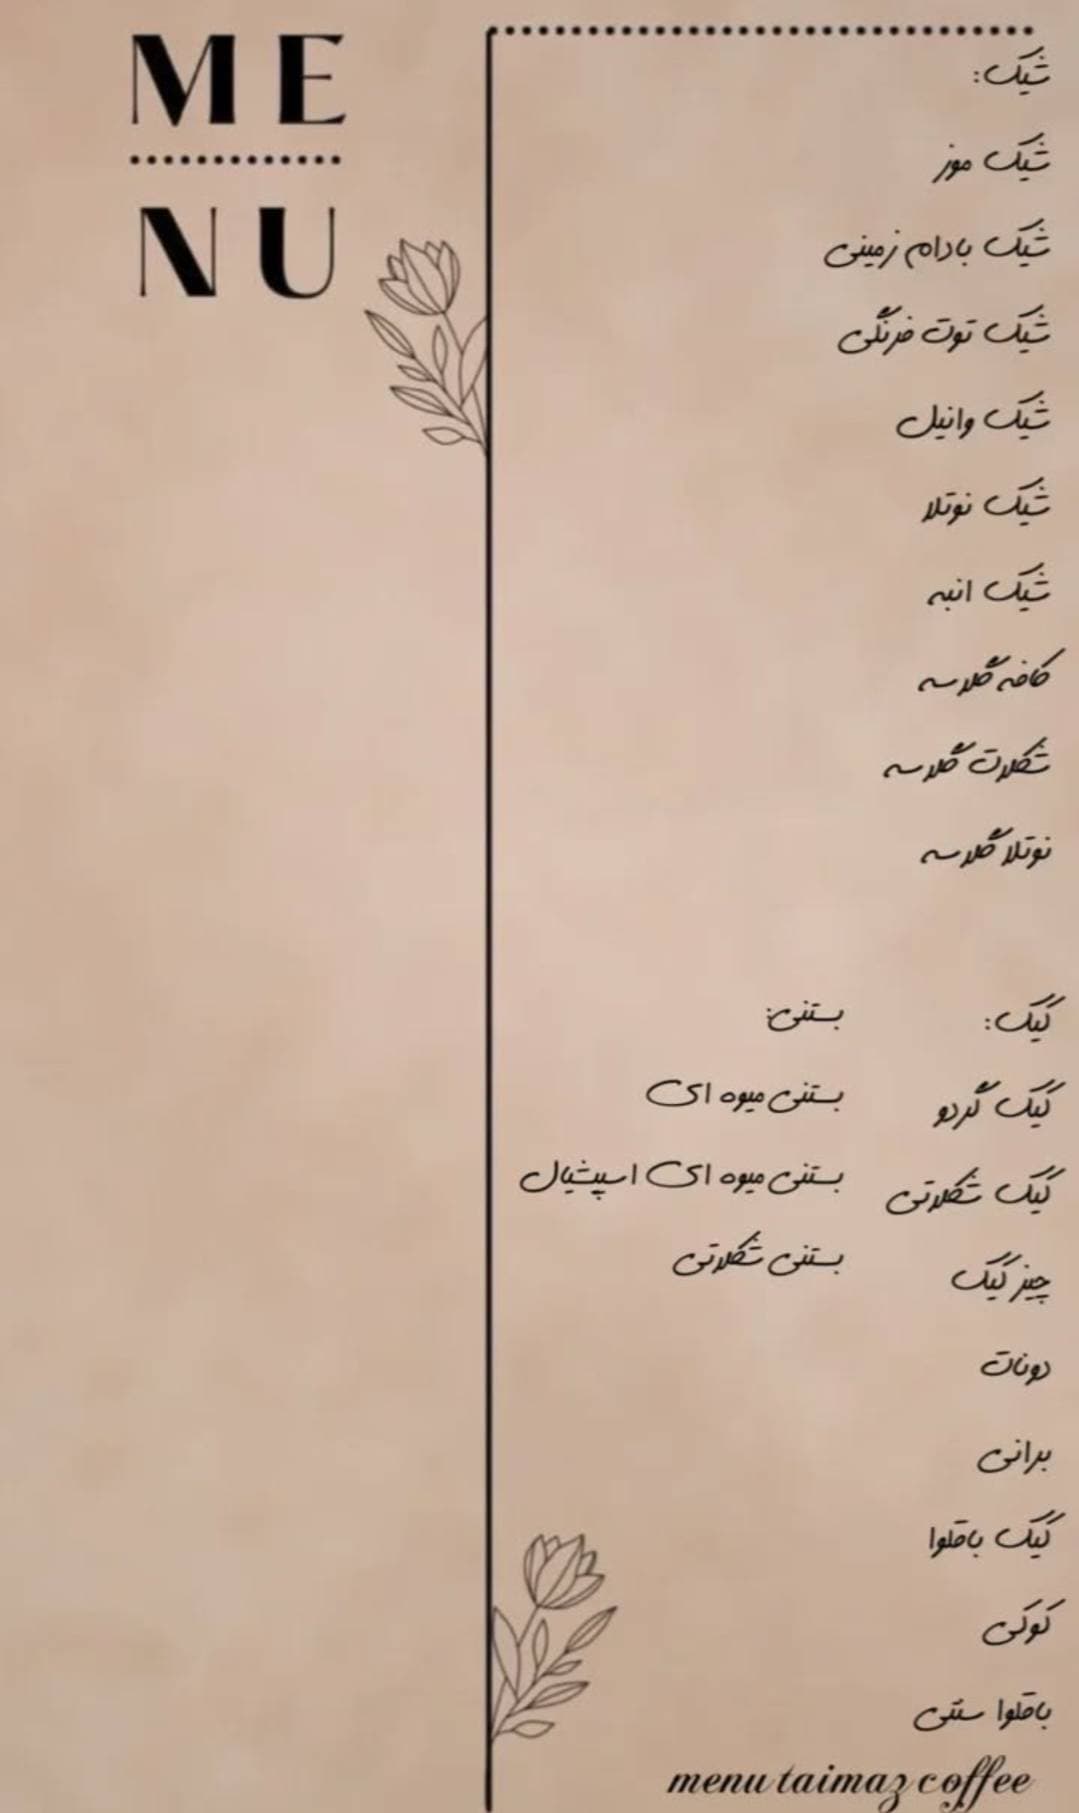 ME
NU
شیک:
شیک موز
شیک بادام زمینی
شیک توت فرنگی
شیک وانیل
شیک نوتلا
شیک انبه
کافه گلاسه
شکلات گلاسه
نوتلا گلاسه
کیک:
کیک گردو
کیک شکلاتی
چیز کیک
دونات
برانی
کیک باقلوا
کوکی
باقلوا سنتی
بستنی:
بستنی میوه ای
بستنی میوه ای اسپشیال
بستنی شکلاتی
menu taimaz coffee